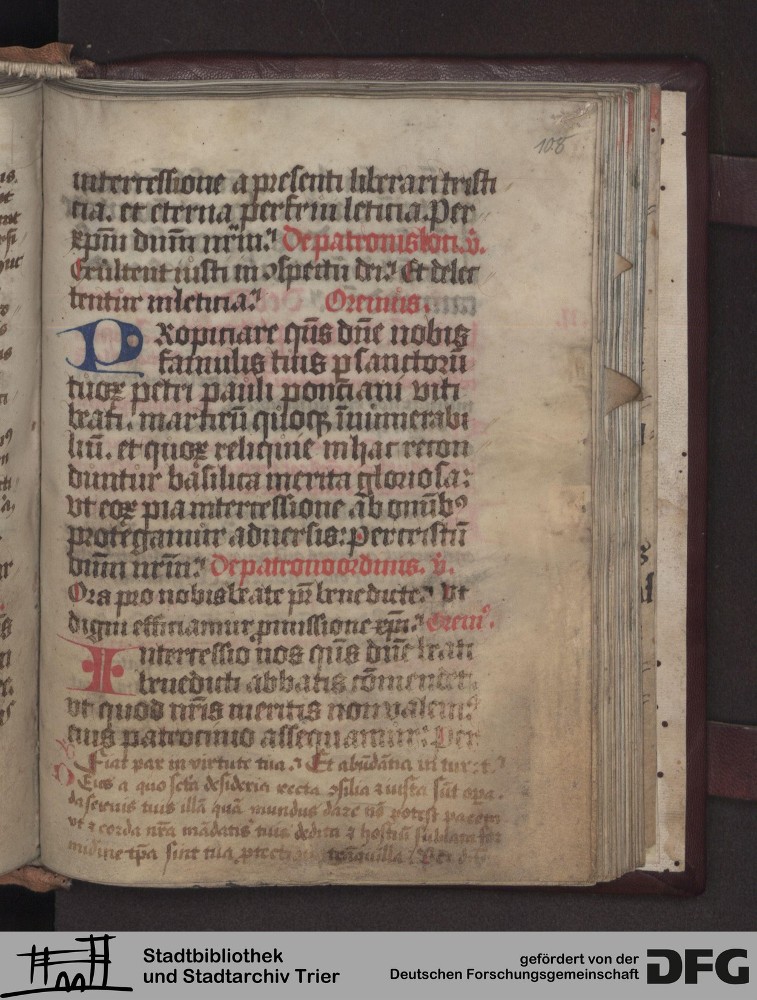 108
intercessione a presenti liberari tristi
cia. et eterna perfrui leticia. Per
xpm̄ dn̄m nr̄m. De patronis loci. v̄.
Exultent iusti in ɔspectu dei. Et delec
tentur in leticia. Oremus.
PRopiciare qs̄ dn̄e nobis
famulis tuis p sanctorū
tuoꝝ petri pauli ponciani viti
beati. martirū quoqꝫ īnumerabi
liū. et quoꝝ reliquie in hac recon
duntur basilica merita gloriosa:
vt eoꝝ pia intercessione ab omībꝰ
protegamur aduersis: Per cristū
dn̄m nr̄m. De patrono ordinis. v̄.
Ora pro nobis beate pr̄ benedicte. Vt
digni efficiamur pmissione xp̄i. Oremꝰ.
Intercessio nos qs̄ dn̄e beati
benedicti abbatis cōmendet.
vt quod nr̄is meritis non valemꝰ
eius patrocinio assequamur. Per
Fiat pax in virtute tua. Et abūdācia in turr
Deus a quo scā desideria recta ɔsilia ⁊ iusta sūt opa.
da seruis tuis illā quā mundus dare nō potest pacem
vt ⁊ corda nr̄a mādatis tuis dedita ⁊ hostiū sublata for
midine tpa sint tua ptectione tranquilla Per d
Stadtbibliothek
und Stadtarchiv Trier
gefördert von der
Deutschen Forschungsgemeinschaft
DFG